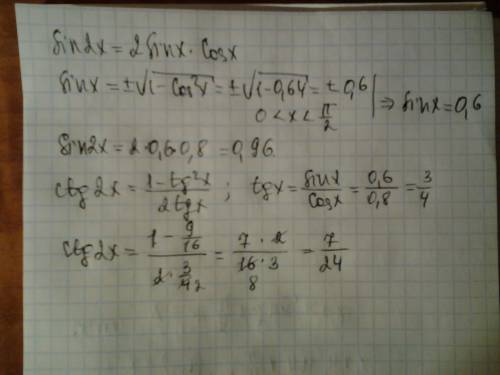 Sin2x = 2Sinx · Cosx
Sinx = ±√(1-Cos²x) = ±√(1-0,64) = ±0,6 | ⇒ Sinx = 0,6
0 < x < π/2
Sin2x = 2·0,6·0,8 = 0,96.
Ctg2x = (1-tg²x)/(2tgx) ; tgx = Sinx/Cosx = 0,6/0,8 = 3/4
Ctg2x = (1 - 9/16)/(2·3/4 2) = (7·2)/(16·3) = 7/24
8